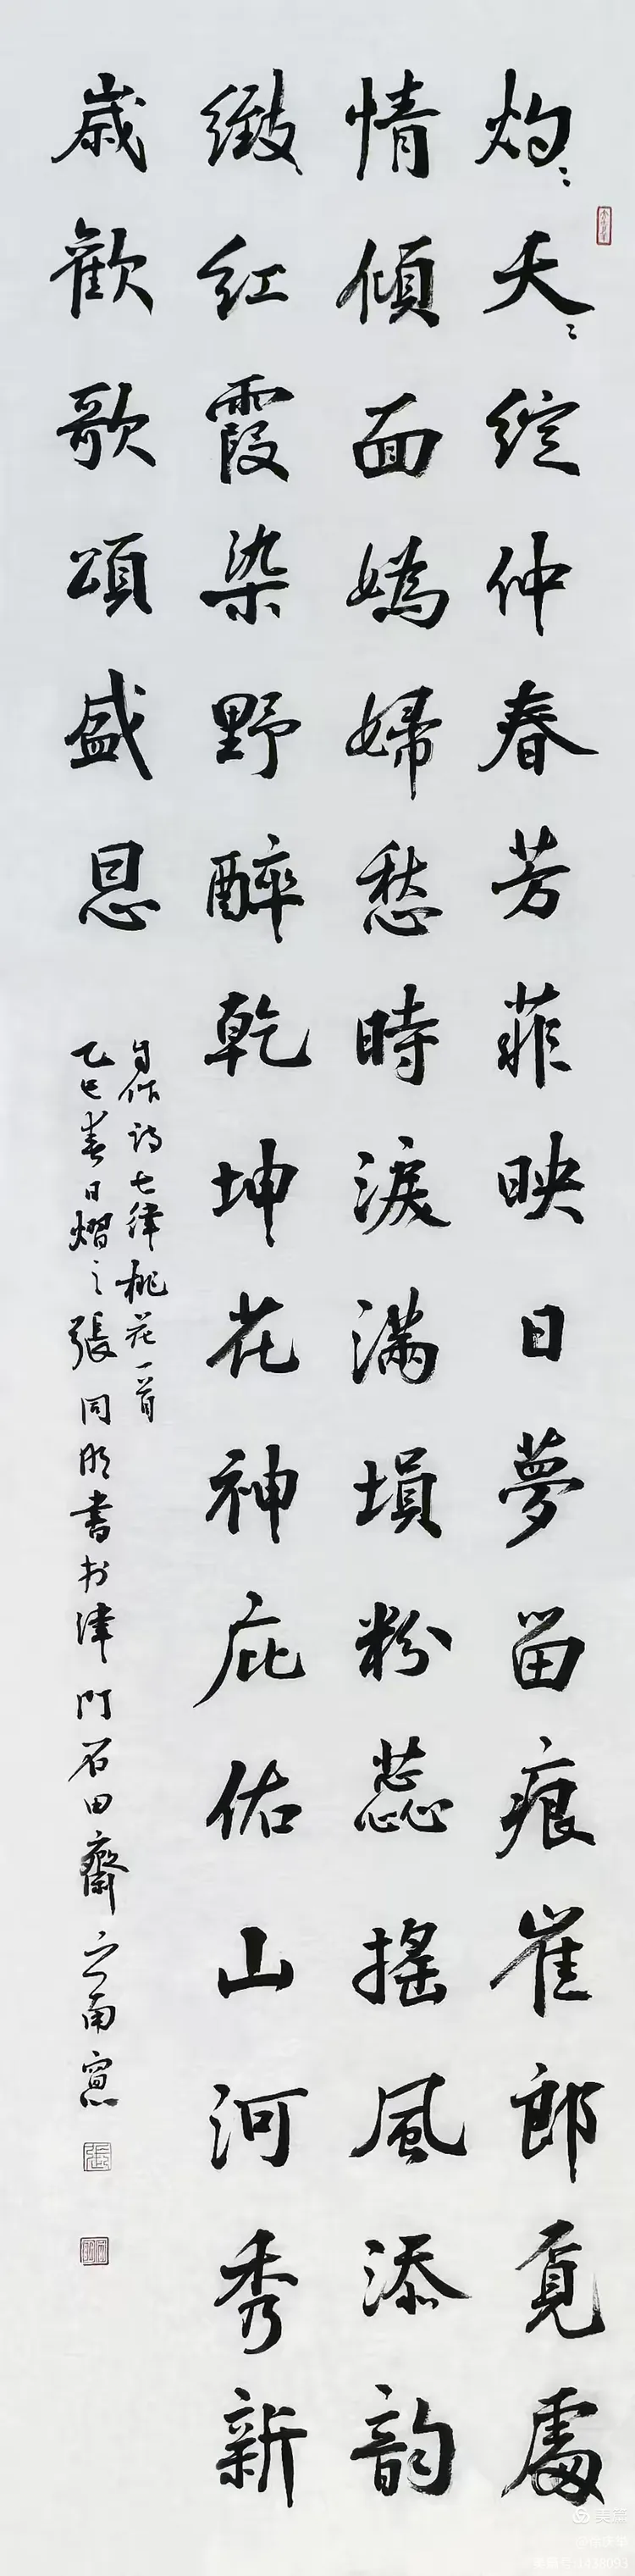 灼〻夭〻綻仲春芳菲映日夢留痕崔郎覓處
情傾面嬌婦愁時淚滿塤粉蕊搖風添韵
緻紅霞染野醉乾坤花神庇佑山河秀新
歲歡歌頌盛恩
自作詩七律桃花一首
乙巳春日熠之張同明書於津門石田齋之南窗
美篇